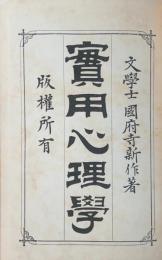 文學士國府寺新作著
實用心理學
版權所有